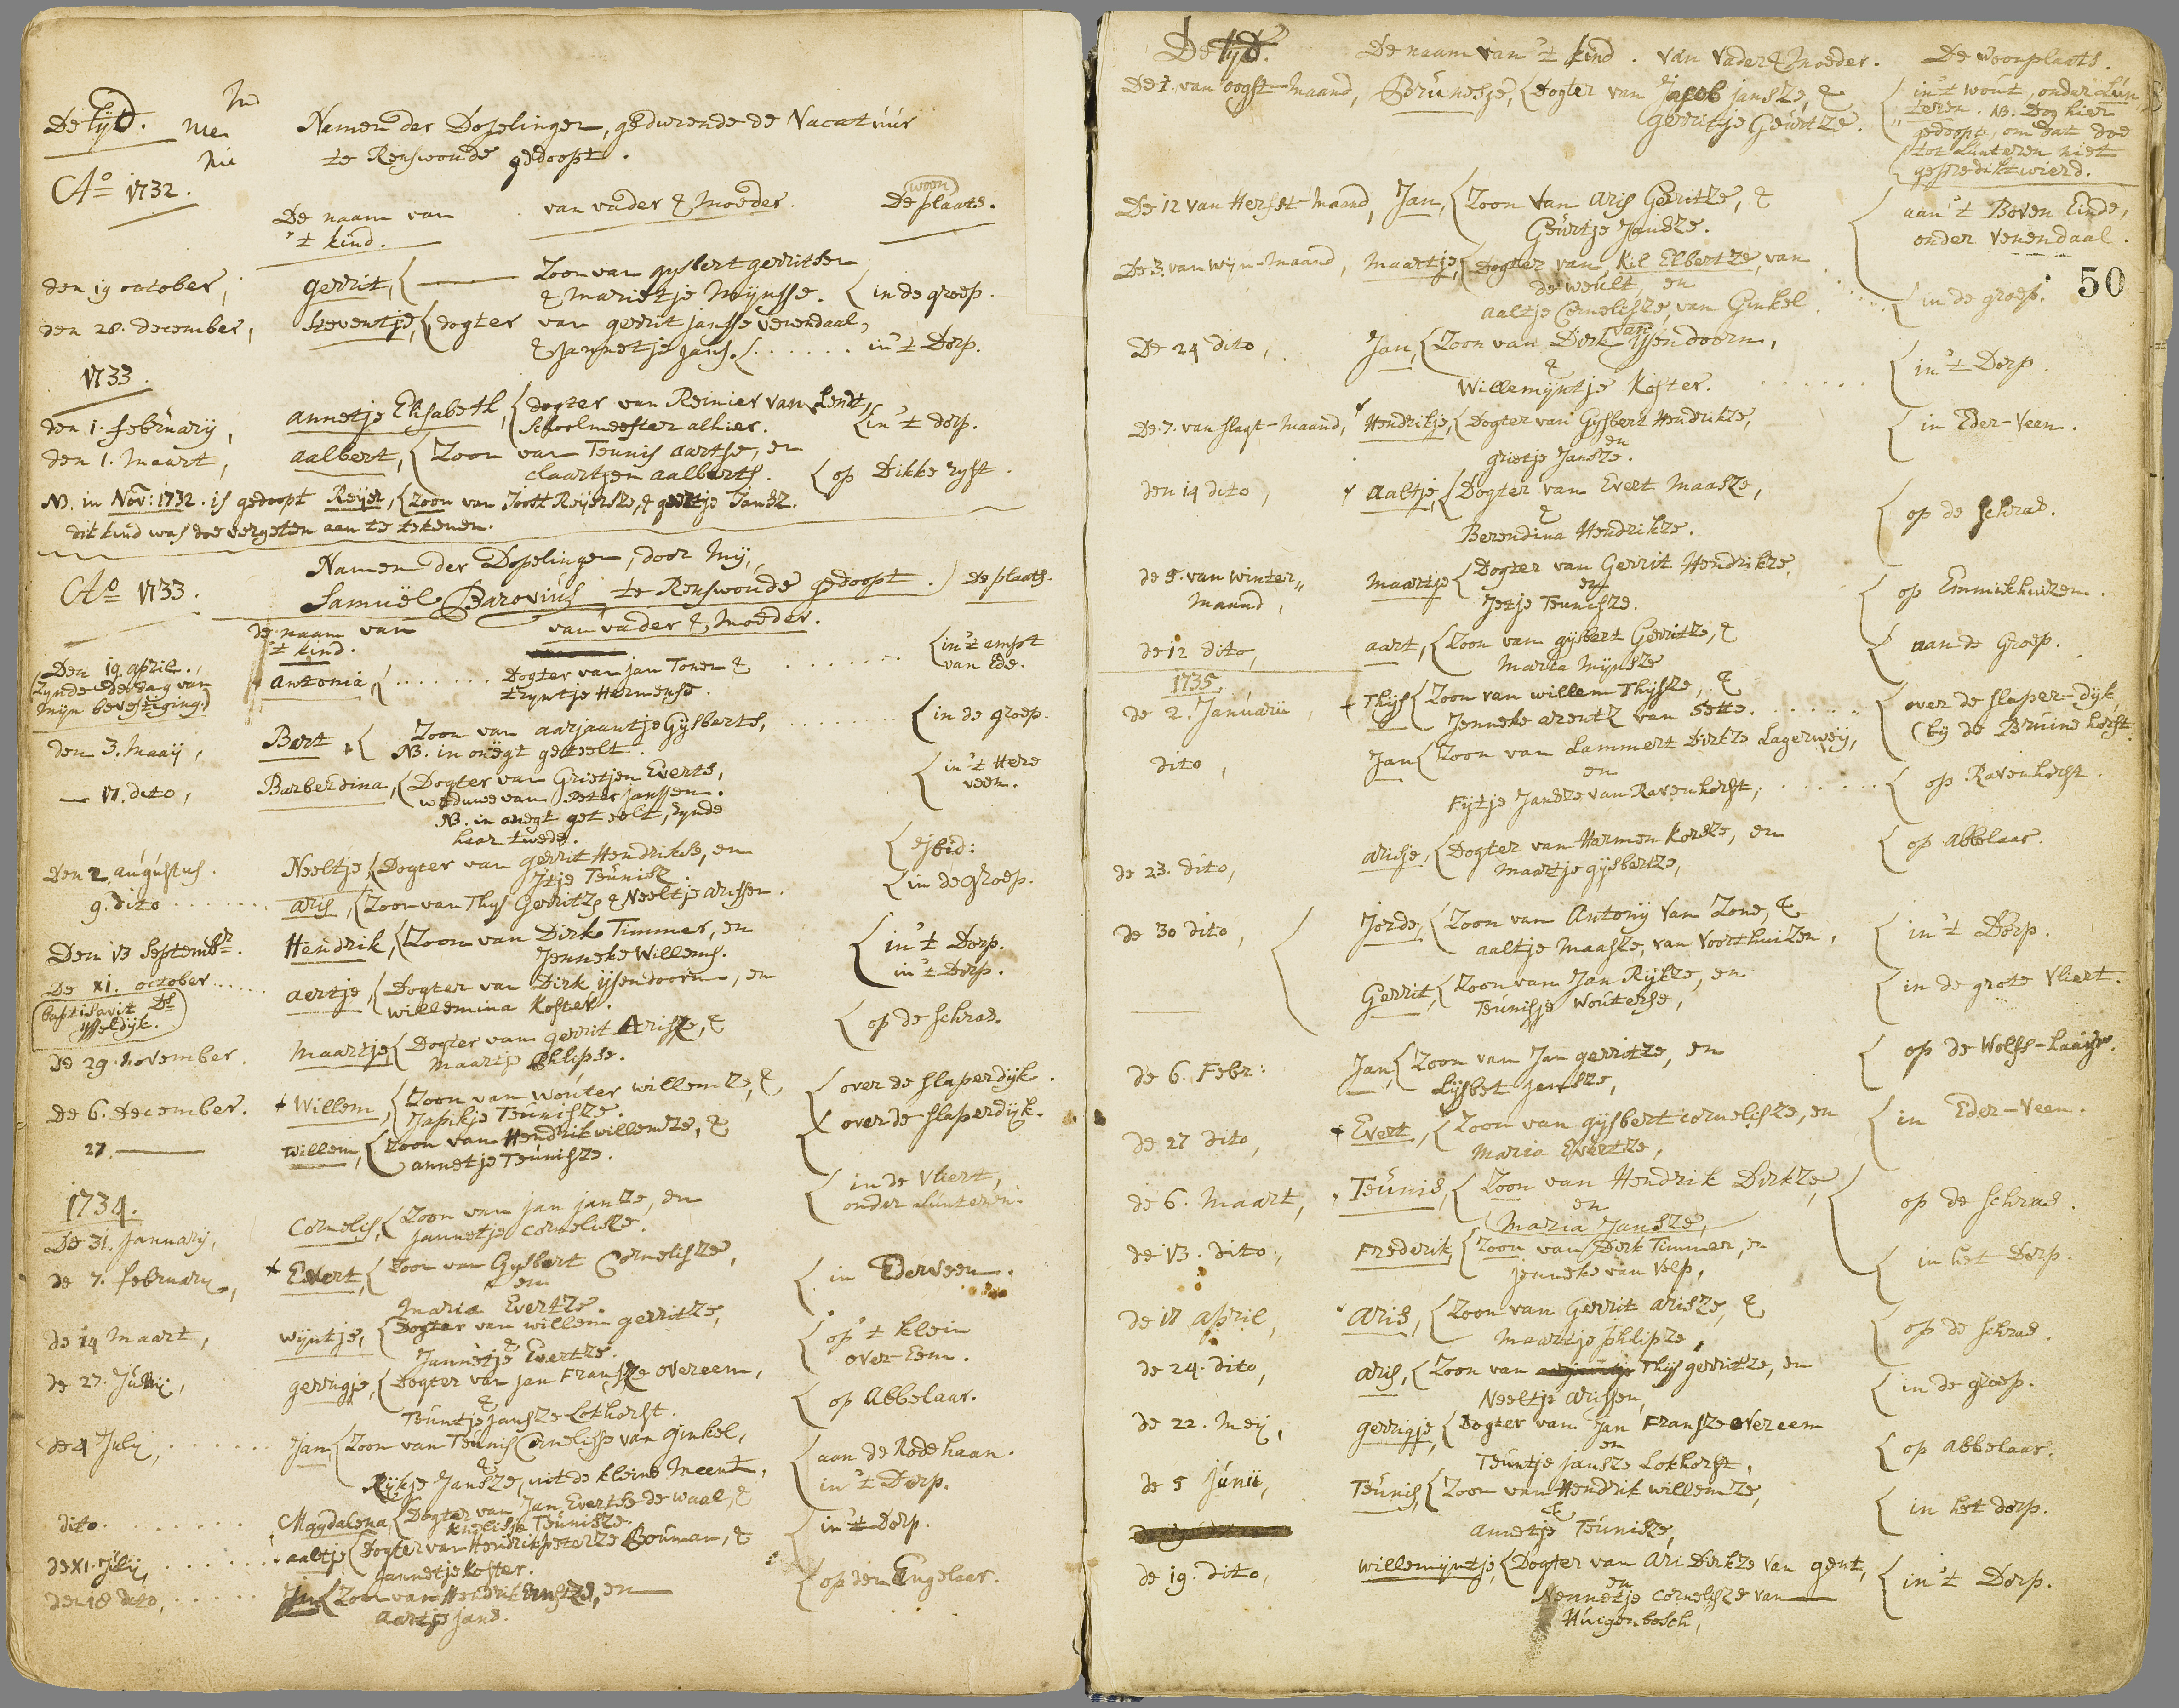 De tÿd.
Namen der Dopelingen, gedurende de Vacatúúr
te Renswoude gedoopt.
Ao 1732.
De naam van
't kind.
van vader & Moeder.
De woon plaats.
den 19 october,
gerrit, { Zoon van gysbert gerritsen
& Marietje Mÿnsse. { in de groep.
den 28. december,
Steventje, { dogter van gerrit jansse Venendaal,
& Jannetje jans. { . . . . . . in 't Dorp.
1733.
den 1. februarÿ,
annetje Elisabeth, { dogter van Reinier van Lendt,
Schoolmeester alhier. { in 't dorp.
den 1. Maart,
aalbert, { Zoon van Teunis aartse, en
claartjen aalberts. { op Dikke ryst.
NB. in Nov: 1732. is gedoopt Reijer, { zoon van Joost Reijersze, & geertje Jansz.
dit kind was doe vergeten aan te tekenen.
Ao 1733.
Namen der Dopelingen, door Mÿ,
Samuël Barovius te Renswoude gedoopt.) De plaats.
de naam van
't kind.
van vader & Moeder.
Den 19. april.,
(zynde de dag van
mÿn bevestiging.)
antonia, { . . . . . . Dogter van jan Tonen &
tryntje Harmense.
{ in 't ampt
van Ede.
den 3. Maaÿ,
Bart, { Zoon van aarjaantje Gÿsberts,
NB. in onegt geteelt.
{ in de groep.
17. dito,
Barberdina, { Dogter van Grietjen Everts,
weduwe van Peter janssen.
NB. in onegt geteelt, zynde
haar twede.
{ in 't Here
veen.
den 2. augustus.
Neeltje, { Dogter van gerrit Hendrikse, en
Jtje Teunisz.
{ ejbid:
9. dito
aris, { Zoon van Thys Gerritz & Neeltje arissen.
{ in de groep.
Den 13 Septembr.
Hendrik, { Zoon van Dirk Timmer, en
Jenneke Willems.
{ in 't Dorp.
De XI. october
(baptisavit Ds
Ysseldÿk.)
aertje, { Dogter van Dirk ÿsendoorn, en
willemina Koster.
in 't Dorp.
de 29. november.
Maartje { Dogter van gerrit Arisze, &
Maartje Phlipse.
{ op de schras.
de 6. december.
+ Willem, { Zoon van Wouter willemze, &
Japikje Teunisze.
{ over de slaperdÿk.
27.
Willem, { Zoon van Hendrik willemze, &
annetje Teunisze.
{ over de slaperdÿk.
1734.
De 31. january,
Cornelis, { Zoon van jan janze, en
jannetje Cornelisze.
{ in de Vliert,
onder Lunteren.
de 7. february,
+ Evert, { Zoon van Gysbert Cornelisze,
en
Maria Evertze.
{ in Ederveen.
de 14 Maart,
wÿntje, { Dogter van willem gerritze,
&
Jannetje Evertze.
{ op 't klein
over-Eem.
de 27. Junÿ,
gerrigje, { Dogter van jan Fransze overeem,
&
Teuntje jansze Lokhorst.
{ op Abbelaar.
de 4 July,
Jan, { Zoon van Teunis Cornelisse van ginkel,
&
Rÿkje Jansze, uit de kleine Meent,
{ aan de Rode haan.
in 't Dorp.
dito.
Magdalena, { Dogter van Jan Evertse de waal, &
Knelisje Teunisze.
{ in 't Dorp.
de XI. July,
aaltje { Dogter van Hendrik peterze Bouman, &
Jannetje Koster.
den 18 dito,
Jan { Zoon van Hendrik Ernstze, en
Aartje jans.
{ op den Engelaar.
De tyd. De naam van 't kind. van Vader & Moeder. De woonplaats.
De 1. van oogst-maand, Brunesje, { Dogter van Jacob jansze, &
gerritje Geurtze.
{ in 't wout, onder Lun
teren. NB. Dog hier
gedoopt, om dat doe
tot Lunteren niet
gepredikt wierd.
De 12 van Herfst-maand, Jan, { Zoon van Aris Gerritze, &
Geurtje Jansze.
{ aan 't Boven Einde,
onder Venendaal.
50
De 3. van Wÿn-maand, Maartje, { Dogter van Kil Elbertze, van
de weult, en
aaltje Cornelisze, van Ginkel
{ in de groep.
De 24 dito,
Jan, { Zoon van Dirk van ÿsendoorn,
&
Willemÿntje Koster.
{ in 't Dorp.
De 7. van slagt-maand, Hendrikje, { Dogter van Gysbert Hendrikze,
en
grietje Jansze.
{ in Eder-Veen.
den 14 dito,
aaltje, { Dogter van Evert Maasze,
&
Berendina Hendrikze.
{ op de schras.
de 5. van winter
maand,
Maartje { Dogter van Gerrit Hendrikze
en
Jetje Teunisze.
{ op Emmikhuizen.
de 12 dito,
aart, { Zoon van gysbert Gerritze, &
Marta Mÿnsze
{ aan de Groep.
1735.
de 2. Januarii,
+ Thys { Zoon van willem Thysze, &
Jenneke arentz van Sette.
{ over de slaper-dÿk,
(bÿ de Bruine horst.
dito,
Jan { Zoon van Lammert Dirkze Lagerweÿ,
en
Fÿtje Jansze van Ravenhorst,
{ op Ravenhorst.
de 23. dito,
arisje, { Dogter van Harmen Korsze, en
Maartje gysbertze,
{ op Abbelaar.
de 30 dito,
Jorde, { Zoon van Antonÿ van Zone, &
aaltje Maasze, van Voorthuizen,
{ in 't Dorp.
Gerrit, { Zoon van Jan Rÿkze, en
Teunisje Wouterse,
{ in de grote Vliert.
de 6. Febr:
Jan, { Zoon van Jan gerritze, en
Lÿsbet Jansze,
{ op de Wolfs-haaijr.
de 27 dito,
+ Evert, { Zoon van gysbert cornelisze, en
Maria Evertze,
{ in Eder-Veen.
de 6. Maart,
Teunis, { Zoon van Hendrik Dirkze,
en
Maria Jansze,
{ op de schras.
de 13. dito,
Frederik, { Zoon van Dirk Timmer, en
jenneke van Velp,
{ in het Dorp.
de 17 april,
Aris, { Zoon van Gerrit Arisze, &
Maartje phlipze,
{ op de schras.
de 24. dito,
aris, { Zoon van Thys gerritze, en
Neeltje Arissen,
{ in de groep.
de 22. Meÿ,
gerrigje { Dogter van Jan Fransze overeem
en
Teuntje jansze Lokhorst,
{ op abbelaar.
de 5 junii,
Teunis, { Zoon van Hendrik willemze,
&
annetje Teunisze,
{ in het dorp.
de 19. dito,
willemÿntje, { Dogter van Ari Dirkze van gent,
en
Nennetje cornelisze van
Huigenbosch,
{ in 't Dorp.